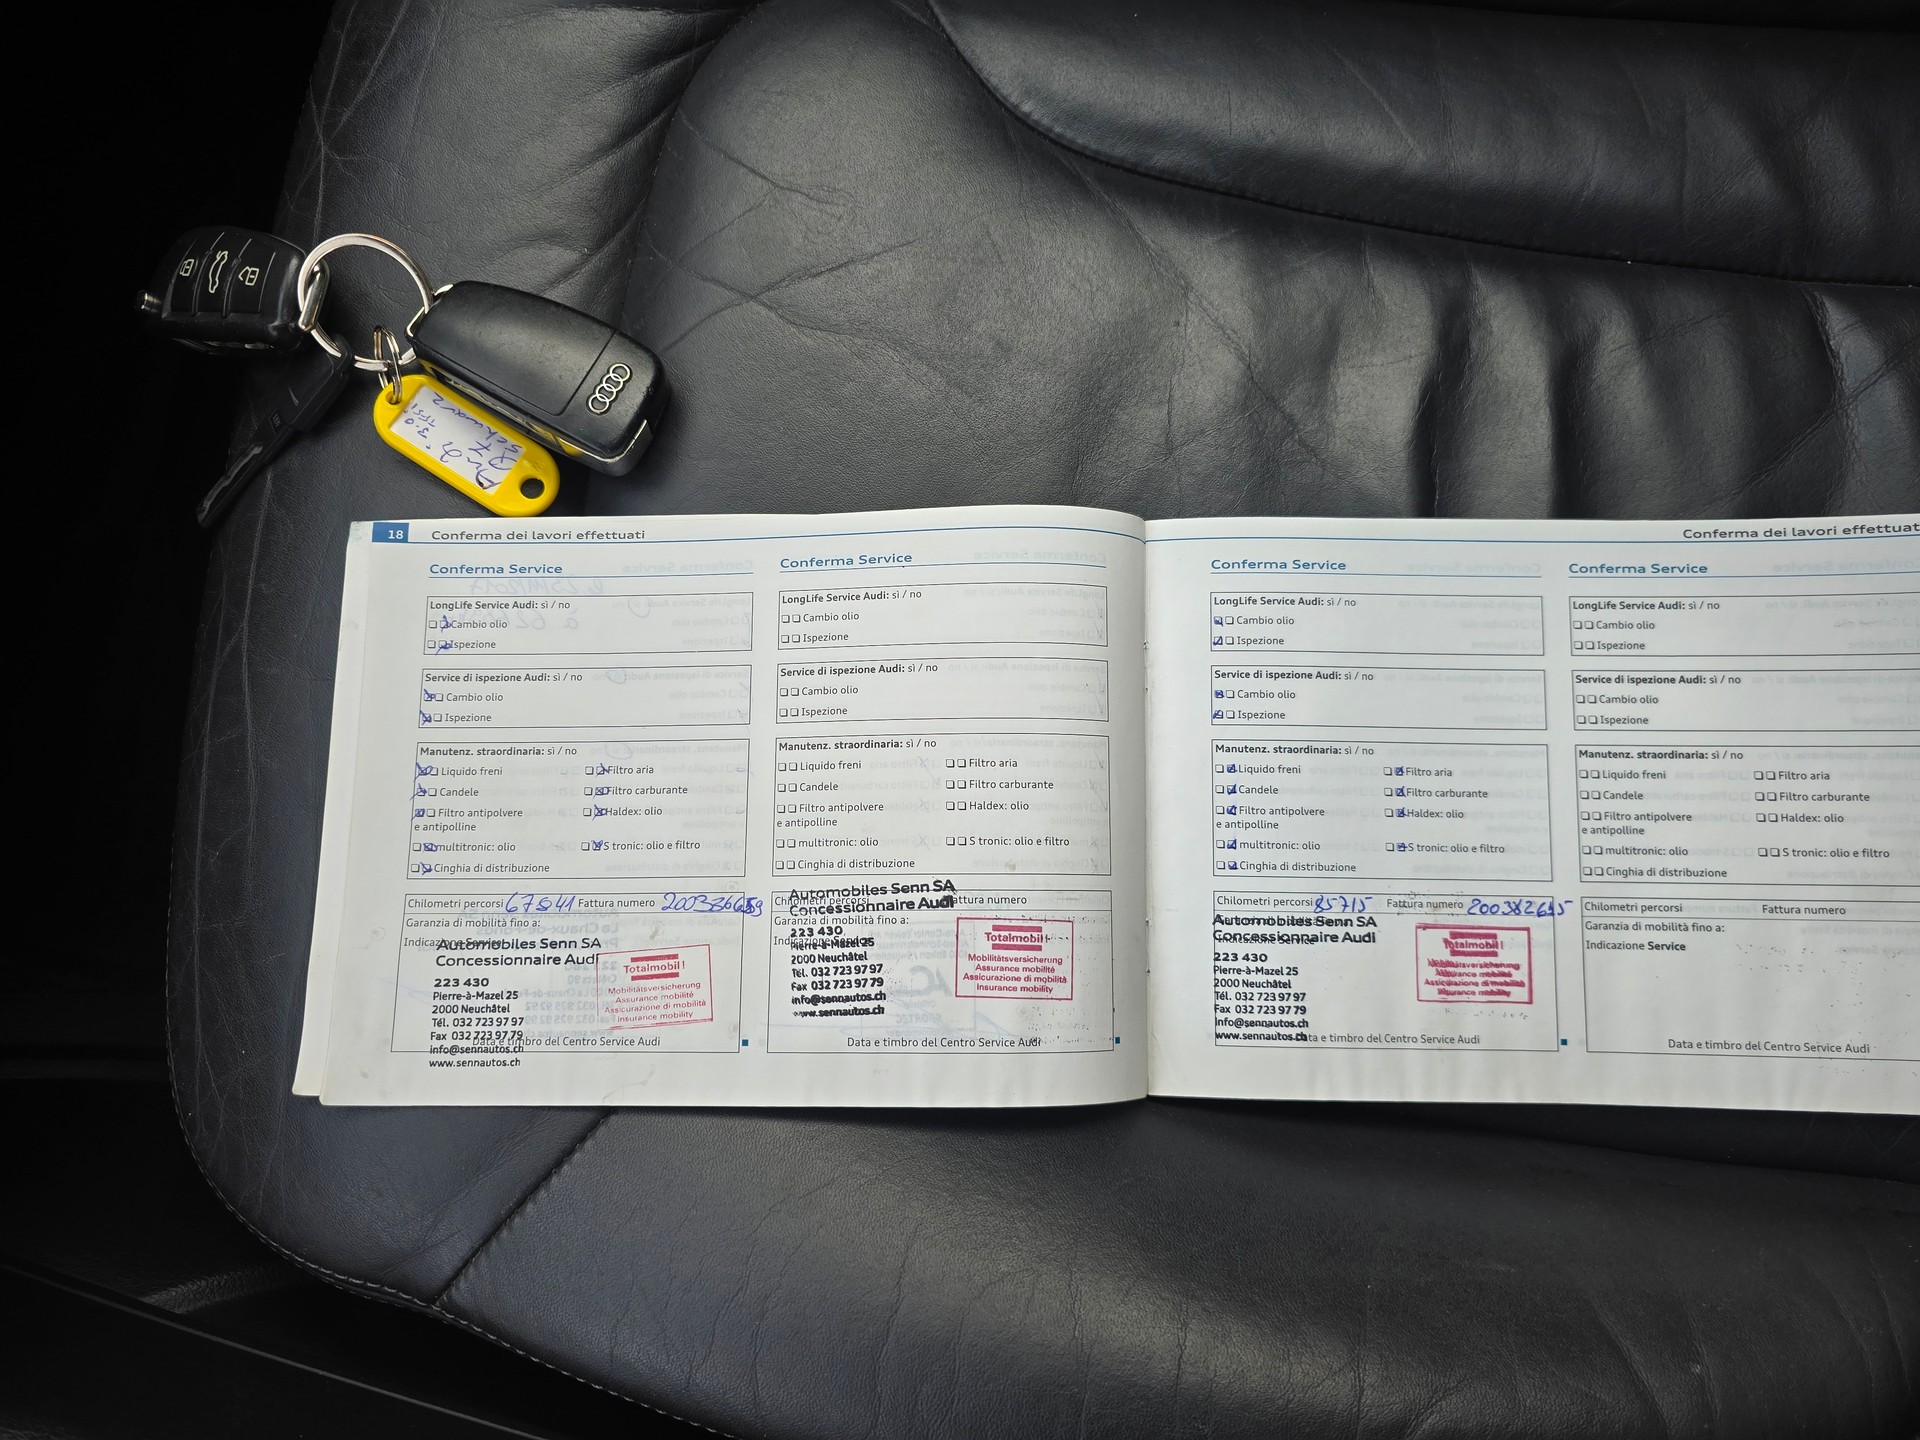 Audi
3.0 TFSI
Schwarz
18 Conferma dei lavori effettuati
Conferma Service
LongLife Service Audi: sì / no
Cambio olio
Ispezione
Service di ispezione Audi: sì / no
Cambio olio
Ispezione
Manutenz. straordinaria: sì / no
Liquido freni Filtro aria
Candele Filtro carburante
Filtro antipolvere Haldex: olio
e antipolline
multitronic: olio S tronic: olio e filtro
Cinghia di distribuzione
Chilometri percorsi Fattura numero
Garanzia di mobilità fino a:
Indicazione Service
Automobiles Senn SA
Concessionnaire Audi
223 430
Pierre-à-Mazel 25
2000 Neuchâtel
Tél. 032 723 97 97
Fax 032 723 97 79
info@sennautos.ch
www.sennautos.ch
Totalmobil!
Mobilitätsversicherung
Assurance mobilité
Assicurazione di mobilità
Insurance mobility
Data e timbro del Centro Service Audi
Conferma Service
LongLife Service Audi: sì / no
Cambio olio
Ispezione
Service di ispezione Audi: sì / no
Cambio olio
Ispezione
Manutenz. straordinaria: sì / no
Liquido freni Filtro aria
Candele Filtro carburante
Filtro antipolvere Haldex: olio
e antipolline
multitronic: olio S tronic: olio e filtro
Cinghia di distribuzione
Automobiles Senn SA
Chilometri percorsi Fattura numero
Concessionnaire Audi
Garanzia di mobilità fino a:
223 430
Indicazione Service
Pierre-à-Mazel 25
2000 Neuchâtel
Tél. 032 723 97 97
Fax 032 723 97 79
info@sennautos.ch
www.sennautos.ch
Totalmobil!
Mobilitätsversicherung
Assurance mobilité
Assicurazione di mobilità
Insurance mobility
Data e timbro del Centro Service Audi
Conferma dei lavori effettuat
Conferma Service
LongLife Service Audi: sì / no
Cambio olio
Ispezione
Service di ispezione Audi: sì / no
Cambio olio
Ispezione
Manutenz. straordinaria: sì / no
Liquido freni Filtro aria
Candele Filtro carburante
Filtro antipolvere Haldex: olio
e antipolline
multitronic: olio S tronic: olio e filtro
Cinghia di distribuzione
Chilometri percorsi 85715 Fattura numero 200382615
Automobiles Senn SA
Concessionnaire Audi
Indicazione Service
223 430
Pierre-à-Mazel 25
2000 Neuchâtel
Tél. 032 723 97 97
Fax 032 723 97 79
info@sennautos.ch
www.sennautos.ch
Totalmobil!
Mobilitätsversicherung
Assurance mobilité
Assicurazione di mobilità
Insurance mobility
Data e timbro del Centro Service Audi
Conferma Service
LongLife Service Audi: sì / no
Cambio olio
Ispezione
Service di ispezione Audi: sì / no
Cambio olio
Ispezione
Manutenz. straordinaria: sì / no
Liquido freni Filtro aria
Candele Filtro carburante
Filtro antipolvere Haldex: olio
e antipolline
multitronic: olio S tronic: olio e filtro
Cinghia di distribuzione
Chilometri percorsi Fattura numero
Garanzia di mobilità fino a:
Indicazione Service
Data e timbro del Centro Service Audi